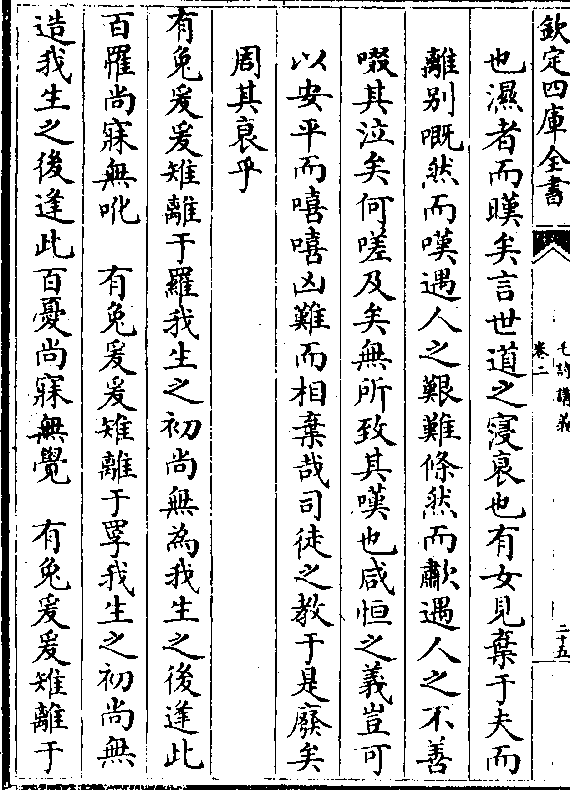 欽定四庫全書
毛詩講義
卷二
二十五
也濕者而暵矣言世道之寖衰也有女見棄于夫而
離别嘅然而嘆遇人之艱難條然而歗遇人之不善
啜其泣矣何嗟及矣無所致其嘆也咸恒之義豈可
以安平而嘻嘻凶難而相棄哉司徒之教于是廢矣
周其衰乎
有兔爰爰雉離于羅我生之初尚無為我生之後逢此
百罹尚寐無吪　有兔爰爰雉離于罦我生之初尚無
造我生之後逢此百憂尚寐無覺　有兔爰爰雉離于